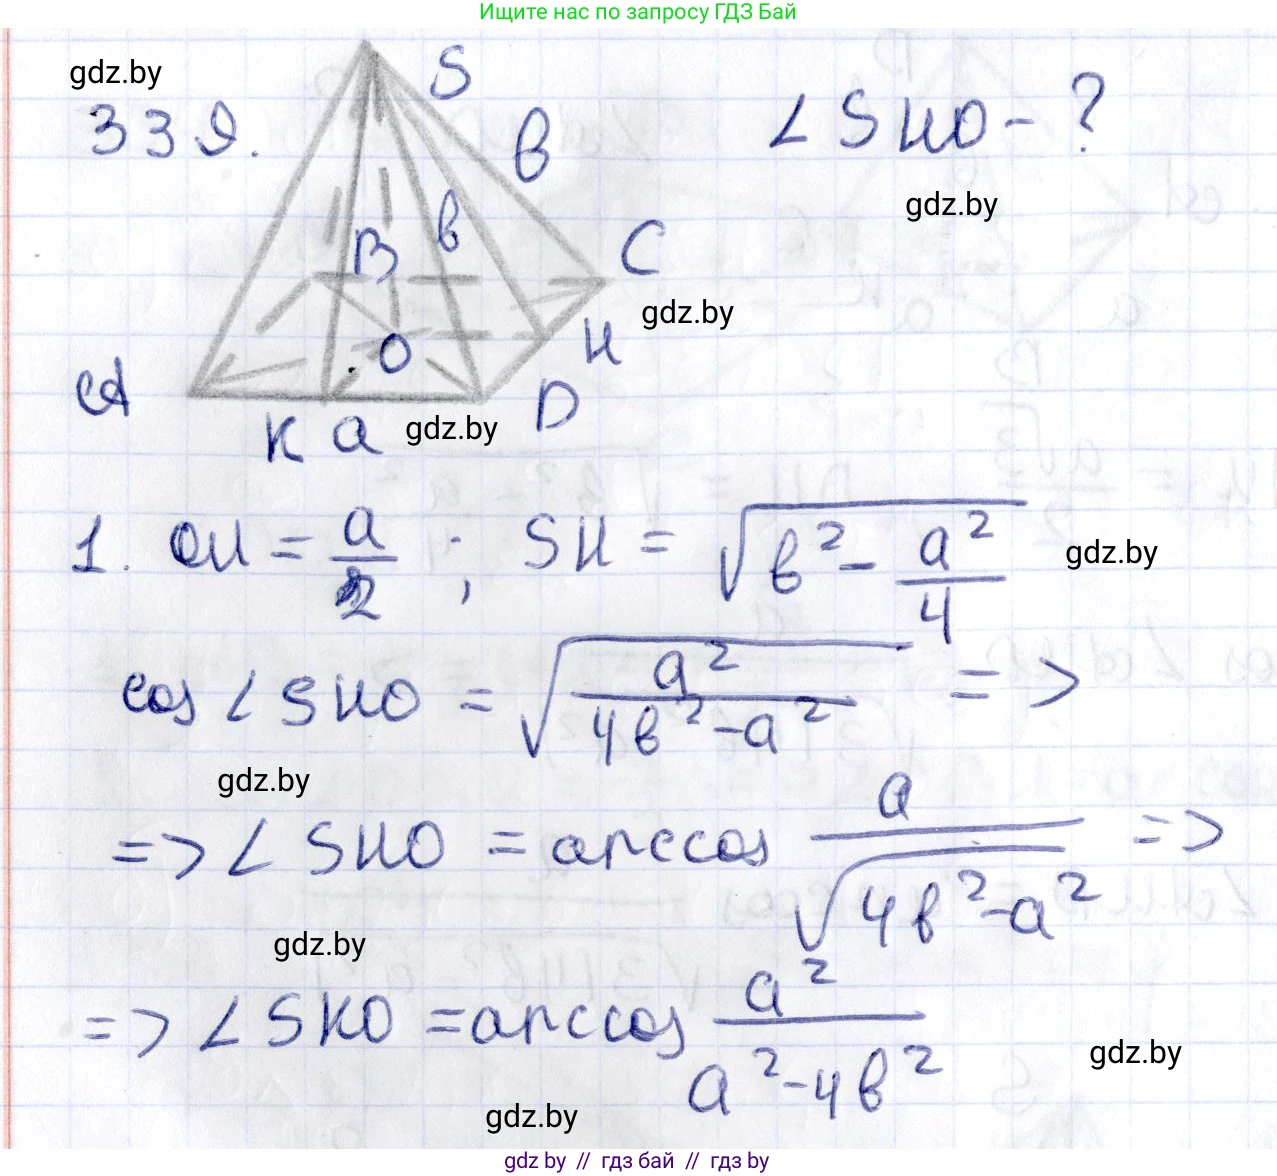 Ищите нас по запросу ГДЗ Бай
gdz.by
339.
S
в
∠SHO - ?
gdz.by
B
в
C
gdz.by
O
H
A
K a
gdz.by
D
1. OH = a/2 ; SH = √(в² - a²/4)
gdz.by
cos ∠SHO = √(a²/(4в² - a²)) =>
gdz.by
=> ∠SHO = arccos a/√(4в² - a²) =>
gdz.by
=> ∠SKO = arccos a²/(a² - 4в²)
gdz.by
gdz.by
gdz.by // гдз бай // гдз by